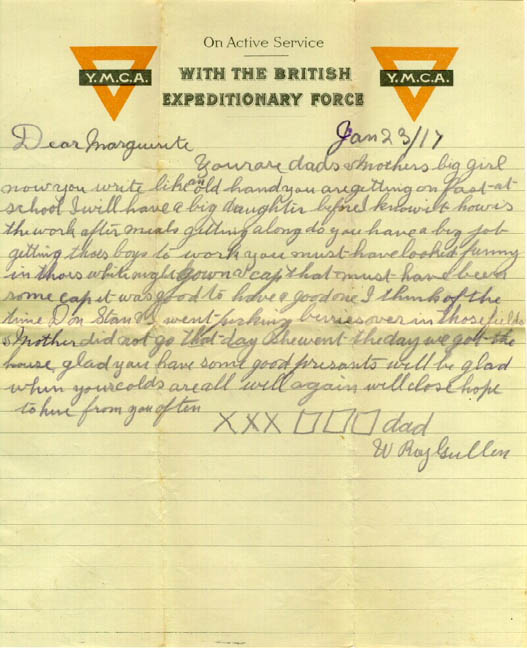 On Active Service
Y.M.C.A.
WITH THE BRITISH
EXPEDITIONARY FORCE
Y.M.C.A.
Dear Marguerite
Jan 23/17
You are dads & Mothers big girl
now you write like an old hand you are getting on fast at
school I will have a big daughter before I know it how is
the work after meals getting along do you have a big job
getting thoes boys to work you must have looked funny
in thoes white night gown & cap that must have been
some cap it was good to have a good one I think of the
time Don Stan & went picking berries over in those fields
& Mother did not go that day she went the day we got the
house glad you have some good presants will be glad
when your colds are all well again will close hope
to hear from you often
XXX □□□ dad
W Ray Gullen